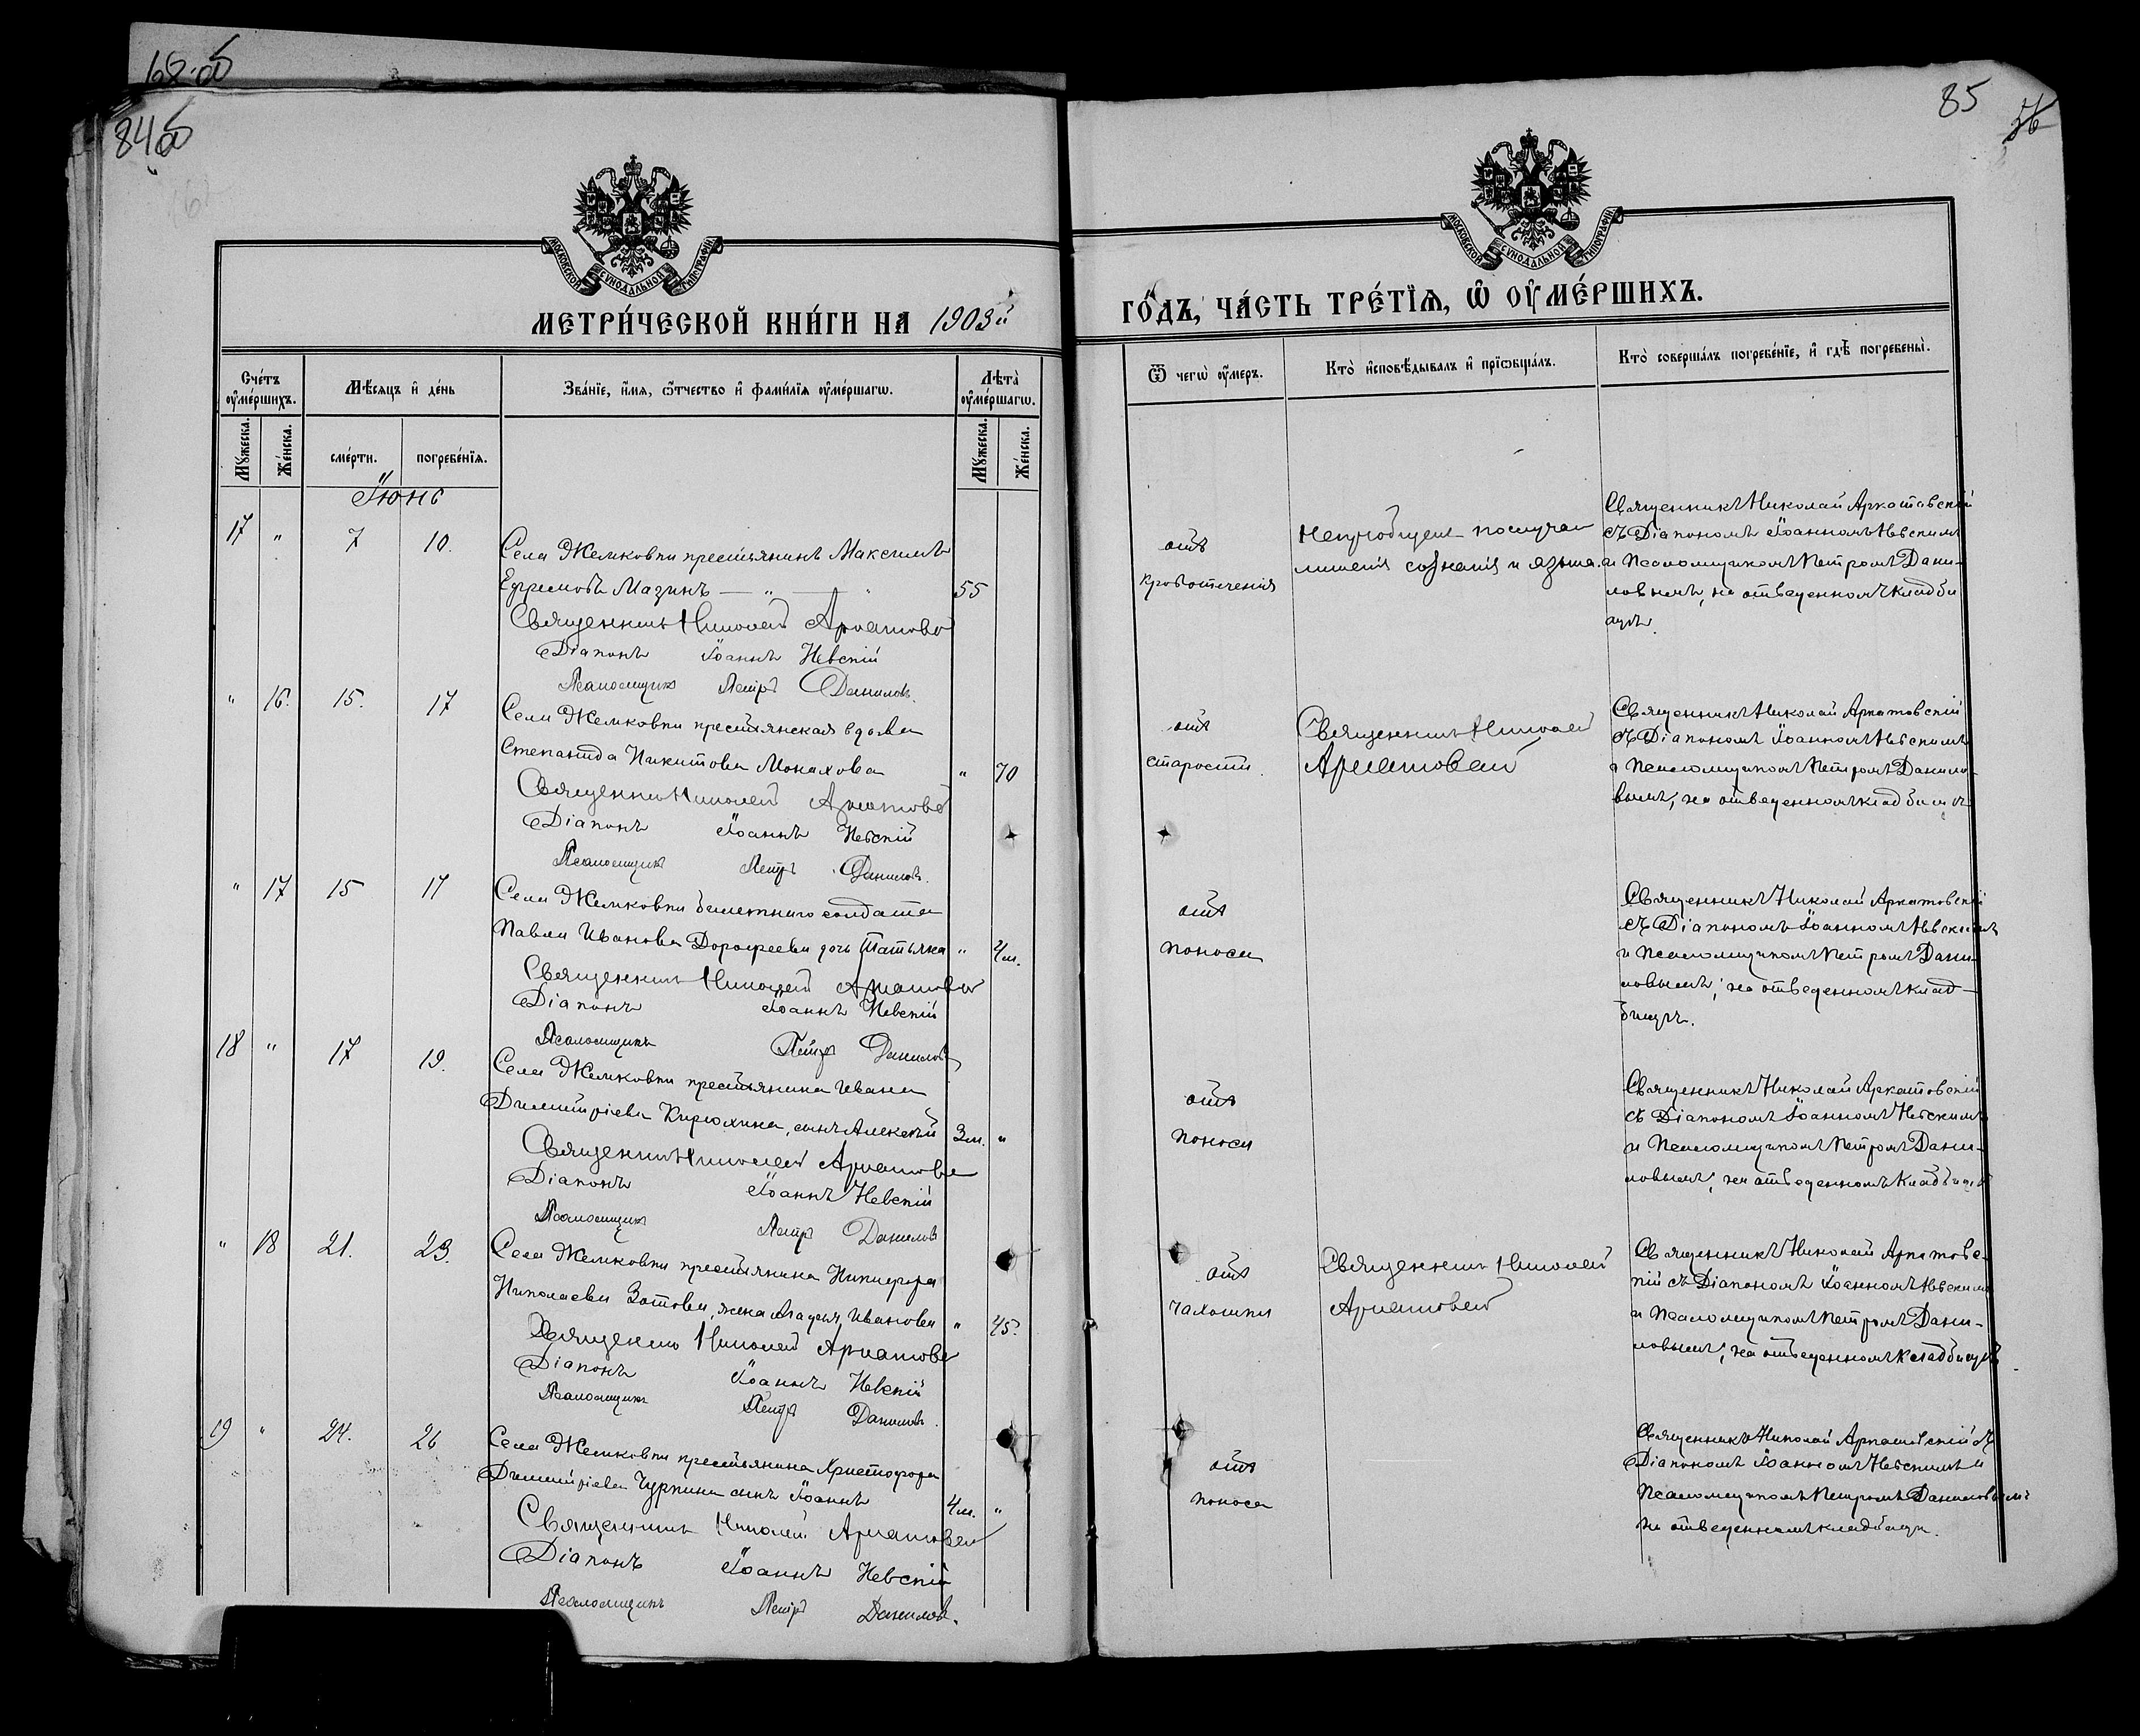 68 об
84 об
85
МОСКОВСКОЙ СѴНОДАЛЬНОЙ ТИПОГРАФІИ
МОСКОВСКОЙ СѴНОДАЛЬНОЙ ТИПОГРАФІИ
МЕТРИ́ЧЕСКОЙ КНИ́ГИ НА 1903й
ГО́ДЪ, ЧА́СТЬ ТРЕ́ТІѦ, Ѿ ОУ҆МЕ́РШИХЪ.
Сче́тъ оу҆ме́ршихъ.
Мѣ́сяцъ и҆ де́нь
Зва́ніе, и҆́мѧ, ѻ҆́тчество и҆ фами́лїѧ оу҆ме́ршагѡ.
Лѣ́та оу҆ме́ршагѡ.
Ѿ чегѡ̀ оу҆́меръ.
Кто̀ и҆сповѣ́дывалъ и҆ прїѡбща́лъ.
Кто̀ соверша́лъ погребе́нїе, и҆ гдѣ̀ погребены̀.
Мꙋ́жеска.
Же́нска.
сме́рти.
погребе́нїѧ.
Мꙋ́жеска.
Же́нска.
Іюнь
17 " 7 10.
Села Жемковки крестьянинъ Максимъ
Ефремовъ Мазинъ — " — " 55
Священникъ Николай Аркатовс
Діаконъ Іоаннъ Невскій
Псаломщик Петръ Данилов.
отъ
кровотеченія
Непріобщенъ по случаю
лишенія сознанія и языка.
Священникъ Николай Аркатовскій
съ Діакономъ Іоанномъ Невскимъ
и Псаломщикомъ Петромъ Дани-
ловымъ, на отведенномъ кладби
щѣ.
" 16. 15. 17
Села Жемковки крестьянская вдова
Степанида Никитова Монахова " 70
Священникъ Николай Аркатовс
Діаконъ Іоаннъ Невскій
Псаломщикъ Петръ Данилов.
отъ
старости.
Священникъ Николай
Аркатовскій
Священникъ Николай Аркатовскій
съ Діакономъ Іоанномъ Невскимъ
и Псаломщикомъ Петромъ Данило-
вымъ, на отведенномъ кладбищѣ
" 17 15 17
Села Жемковки билетнаго солдата
Павла Иванова Дорофеева дочь Татьяна " 4 м.
Священникъ Николай Аркатовс
Діаконъ Іоаннъ Невскій
Псаломщикъ Петръ Данилов
отъ
поноса
Священникъ Николай Аркатовскій
съ Діакономъ Іоанномъ Невскимъ
и Псаломщикомъ Петромъ Дани-
ловымъ, на отведенномъ клад-
бищѣ.
18 " 17 19.
Села Жемковки крестьянина Ивана
Димитріева Кирюхина, сынъ Алексѣй 3 м. "
Священникъ Николай Аркатовс
Діаконъ Іоаннъ Невскій
Псаломщик Петръ Данилов
отъ
поноса
Священникъ Николай Аркатовскій
съ Діакономъ Іоанномъ Невскимъ
и Псаломщикомъ Петромъ Дани-
ловымъ, на отведенномъ кладбищѣ
" 18 21. 23.
Села Жемковки крестьянина Никифора
Николаева Зотова, жена Иванова " 45.
Священникъ Николай Аркатовс
Діаконъ Іоаннъ Невскій
Псаломщикъ Петръ Данилов.
отъ
чахотки
Священникъ Николай
Аркатовскій
Священникъ Николай Аркатовс-
кій съ Діакономъ Іоанномъ Невскимъ
и Псаломщикомъ Петромъ Дани-
ловымъ, на отведенномъ кладбищѣ
19 " 24. 26
Села Жемковки крестьянина Христофора
Димитріева Чуркина сынъ Іоаннъ 4 м. "
Священникъ Николай Аркатовс
Діаконъ Іоаннъ Невскій
Псаломщикъ Петръ Данилов.
отъ
поноса
Священникъ Николай Аркатовскій съ
Діакономъ Іоанномъ Невскимъ и
Псаломщикомъ Петромъ Даниловымъ
на отведенномъ кладбищѣ.